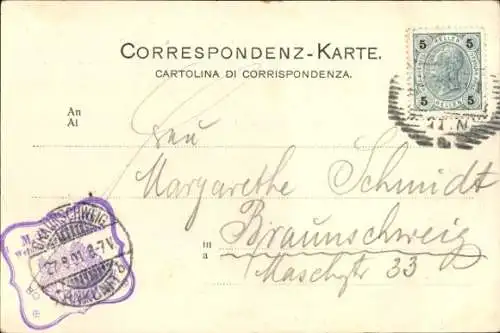 CORRESPONDENZ-KARTE.
CARTOLINA DI CORRISPONDENZA.
5 5
HELLER
5 5
An
Ai
Frau
Margarethe Schmidt
in Braunschweig
a
Maschstr 33
BRAUNSCHWEIG
27.8.01. 6-7V